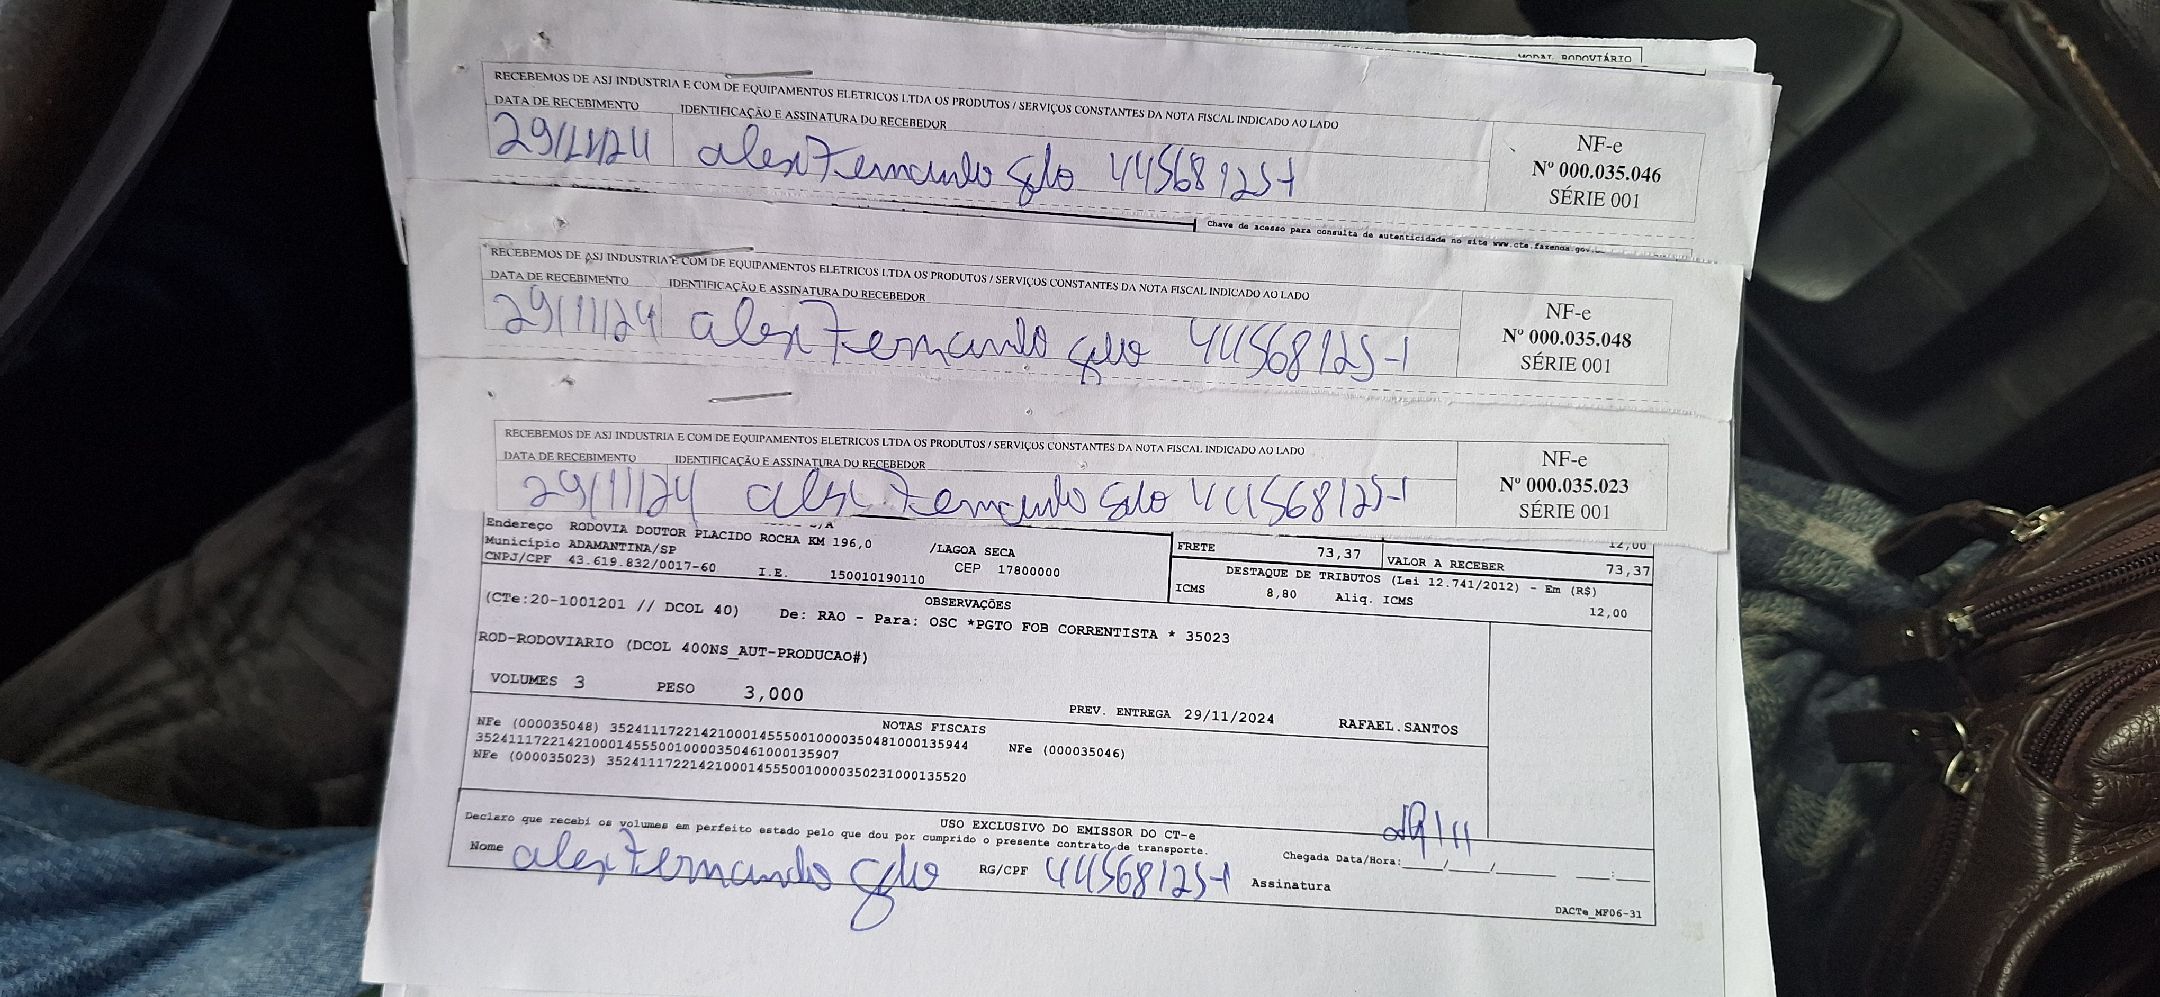 MODAL RODOVIÁRIO
RECEBEMOS DE ASJ INDUSTRIA E COM DE EQUIPAMENTOS ELETRICOS LTDA OS PRODUTOS / SERVIÇOS CONSTANTES DA NOTA FISCAL INDICADO AO LADO
DATA DE RECEBIMENTO IDENTIFICAÇÃO E ASSINATURA DO RECEBEDOR
29/11/24 alex Fernando 44568125-1
NF-e
Nº 000.035.046
SÉRIE 001
Chave de acesso para consulta de autenticidade no site www.cte.fazenda.gov.
RECEBEMOS DE ASJ INDUSTRIA E COM DE EQUIPAMENTOS ELETRICOS LTDA OS PRODUTOS / SERVIÇOS CONSTANTES DA NOTA FISCAL INDICADO AO LADO
DATA DE RECEBIMENTO IDENTIFICAÇÃO E ASSINATURA DO RECEBEDOR
29/11/24 alex Fernando 44568125-1
NF-e
Nº 000.035.048
SÉRIE 001
RECEBEMOS DE ASJ INDUSTRIA E COM DE EQUIPAMENTOS ELETRICOS LTDA OS PRODUTOS / SERVIÇOS CONSTANTES DA NOTA FISCAL INDICADO AO LADO
DATA DE RECEBIMENTO IDENTIFICAÇÃO E ASSINATURA DO RECEBEDOR
29/11/24 alex Fernando 44568125-1
NF-e
Nº 000.035.023
SÉRIE 001
Endereço RODOVIA DOUTOR PLACIDO ROCHA KM 196,0 /LAGOA SECA
Município ADAMANTINA/SP CEP 17800000
CNPJ/CPF 43.619.832/0017-60 I.E. 150010190110
12,00
FRETE 73,37 VALOR A RECEBER 73,37
DESTAQUE DE TRIBUTOS (Lei 12.741/2012) - Em (R$)
ICMS 8,80 Aliq. ICMS 12,00
OBSERVAÇÕES
(CTe:20-1001201 // DCOL 40) De: RAO - Para: OSC *PGTO FOB CORRENTISTA * 35023
ROD-RODOVIARIO (DCOL 400NS_AUT-PRODUCAO#)
VOLUMES 3 PESO 3,000
PREV. ENTREGA 29/11/2024 RAFAEL.SANTOS
NOTAS FISCAIS
NFe (000035048) 35241117221421000145550010000350481000135944 NFe (000035046)
35241117221421000145550010000350461000135907
NFe (000035023) 35241117221421000145550010000350231000135520
USO EXCLUSIVO DO EMISSOR DO CT-e
Declaro que recebi os volumes em perfeito estado pelo que dou por cumprido o presente contrato de transporte.
29/11
Chegada Data/Hora:____/____/______ ___:___
Nome alex Fernando RG/CPF 44568125-1 Assinatura
DACTe_MF06-31